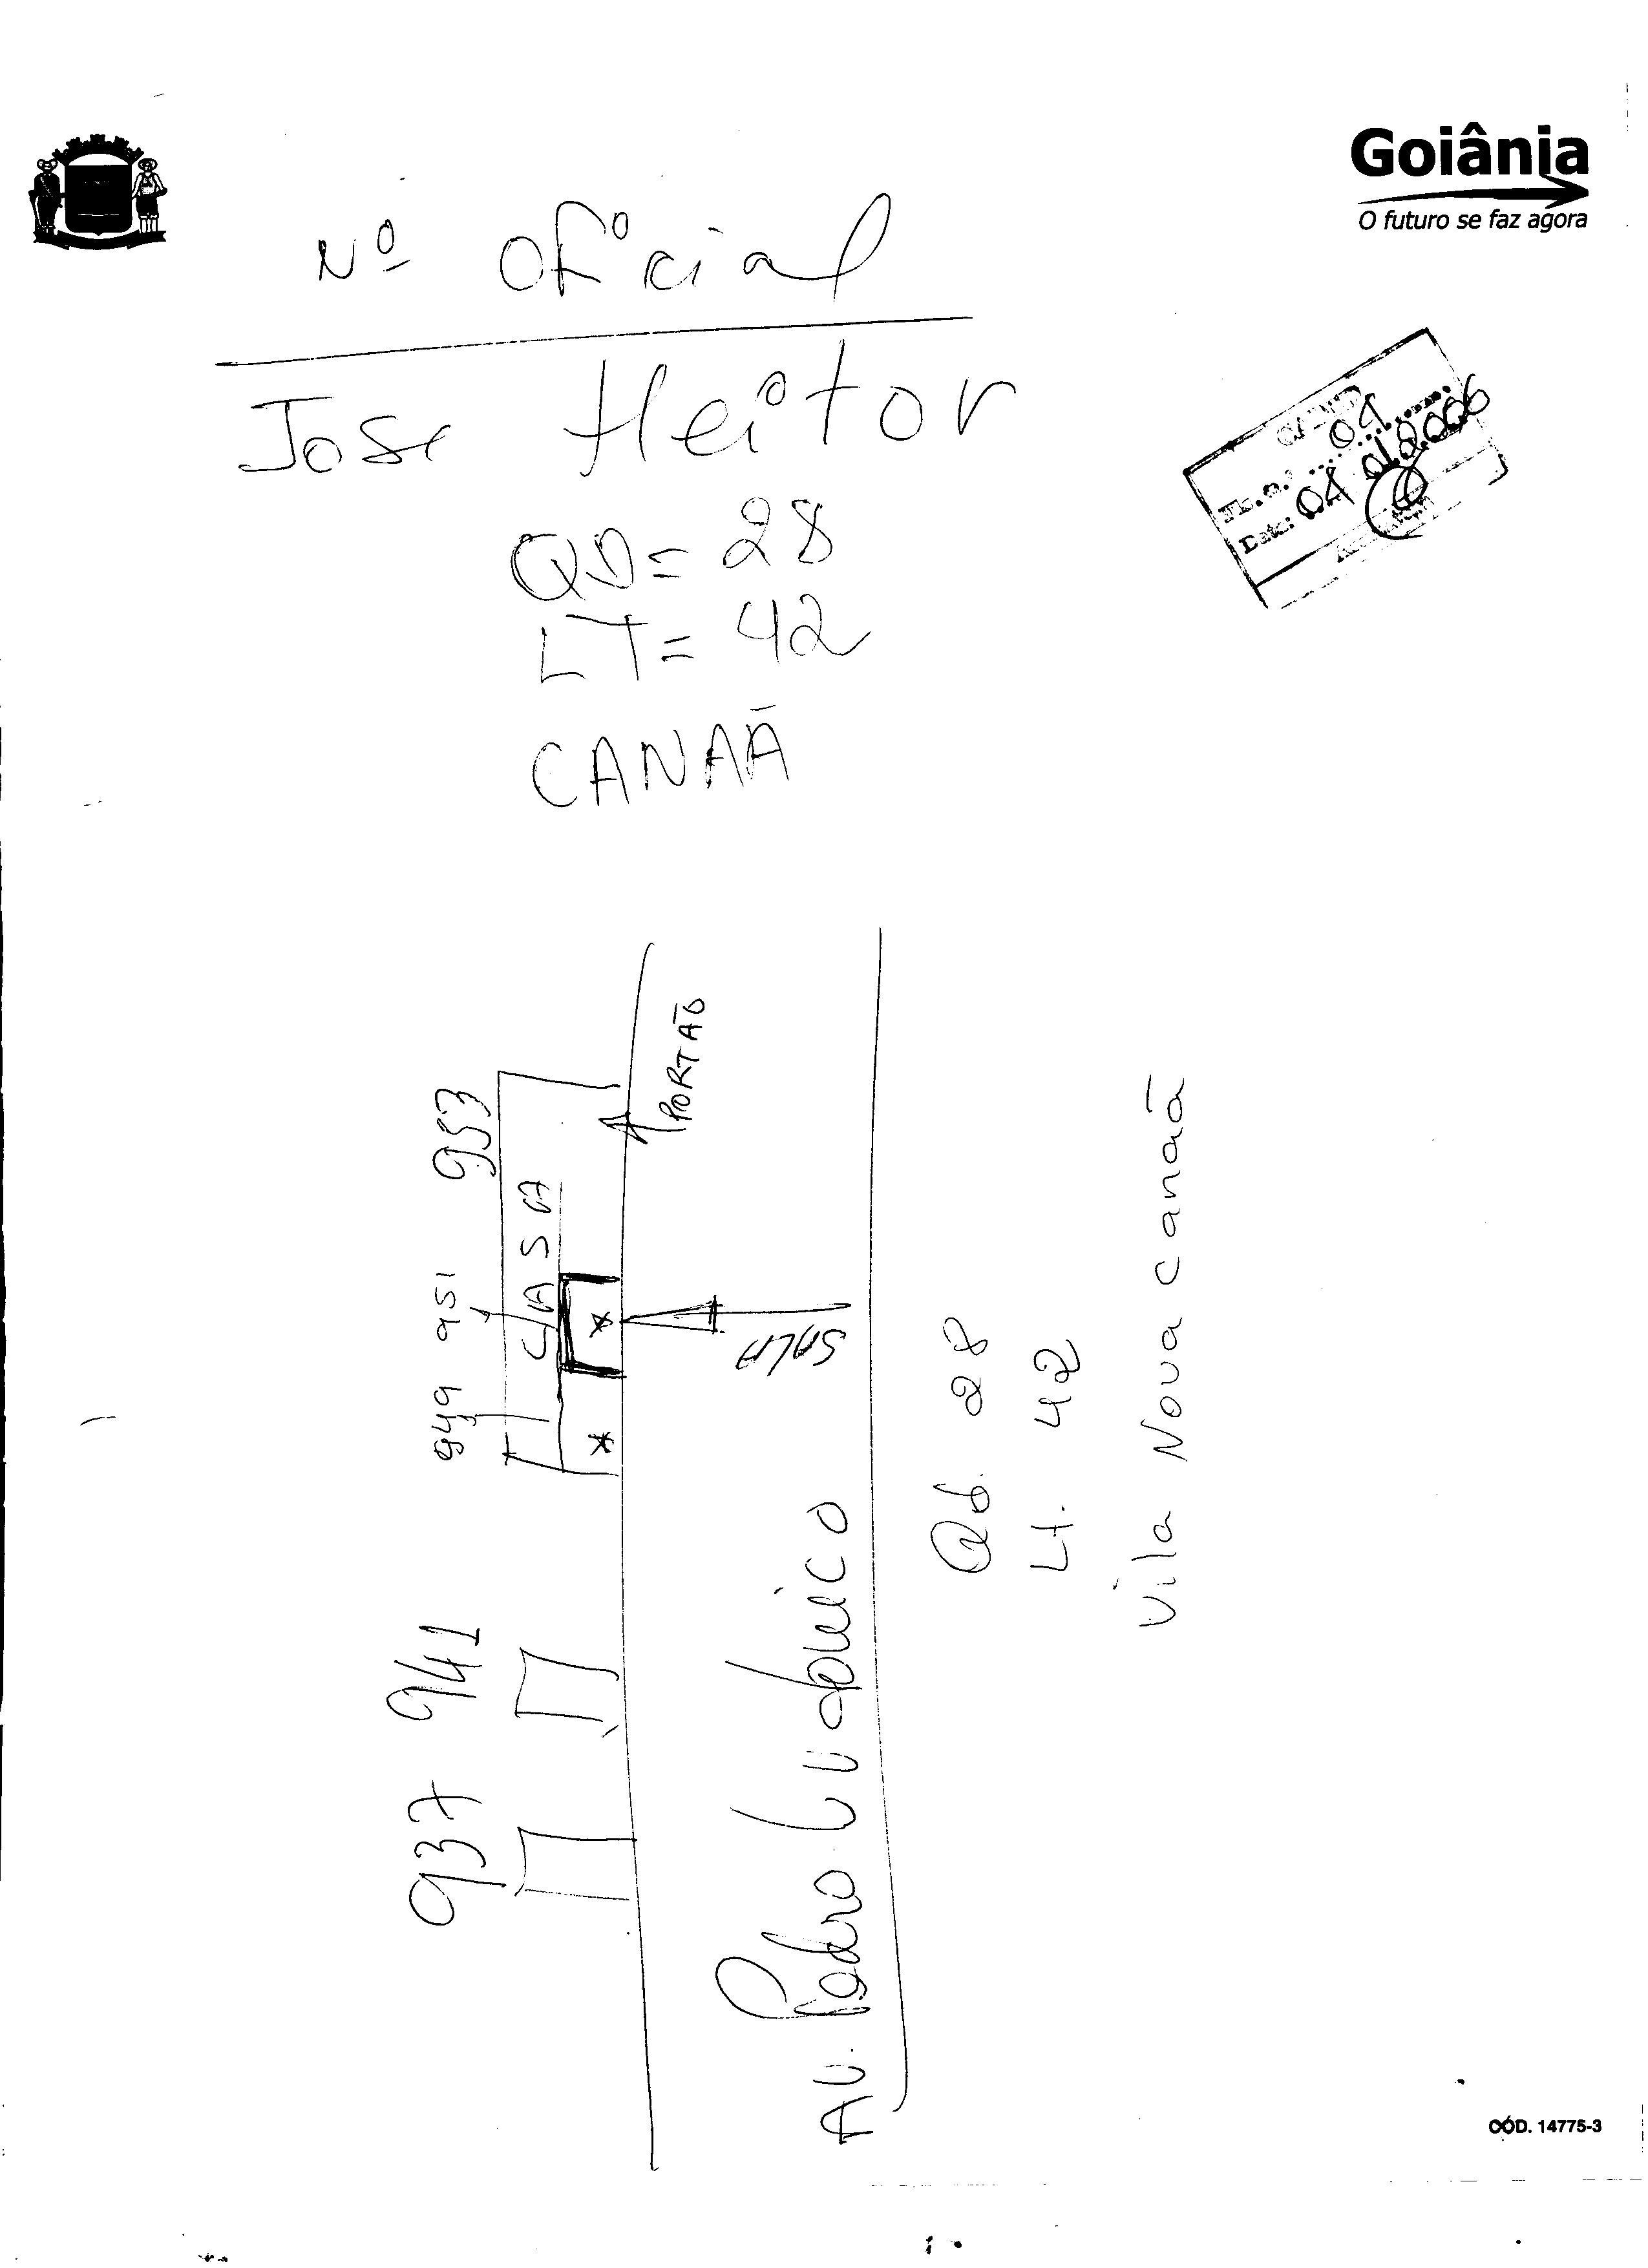 Goiânia
O futuro se faz agora
Nº Oficial
Jose Heitor
QD= 28
LT= 42
CANAÃ
Fls. n.º 04
Data: 04 01 2006
937 941 949 951 953
CASA
PORTÃO
SALA
Av. Pedro Ludovico
Qd. 28
Lt. 42
Vila Nova Canaã
CÓD. 14775-3